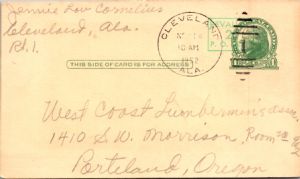 Jennie Low Cornelius
Cleveland, Ala.
Rt. 1.
CLEVELAND
10 AM
1952
ALA.
THIS SIDE OF CARD IS FOR ADDRESS
West Coast Lumbermin's assn
1410 S. W. Morrison, Room
Porteland, Oregon